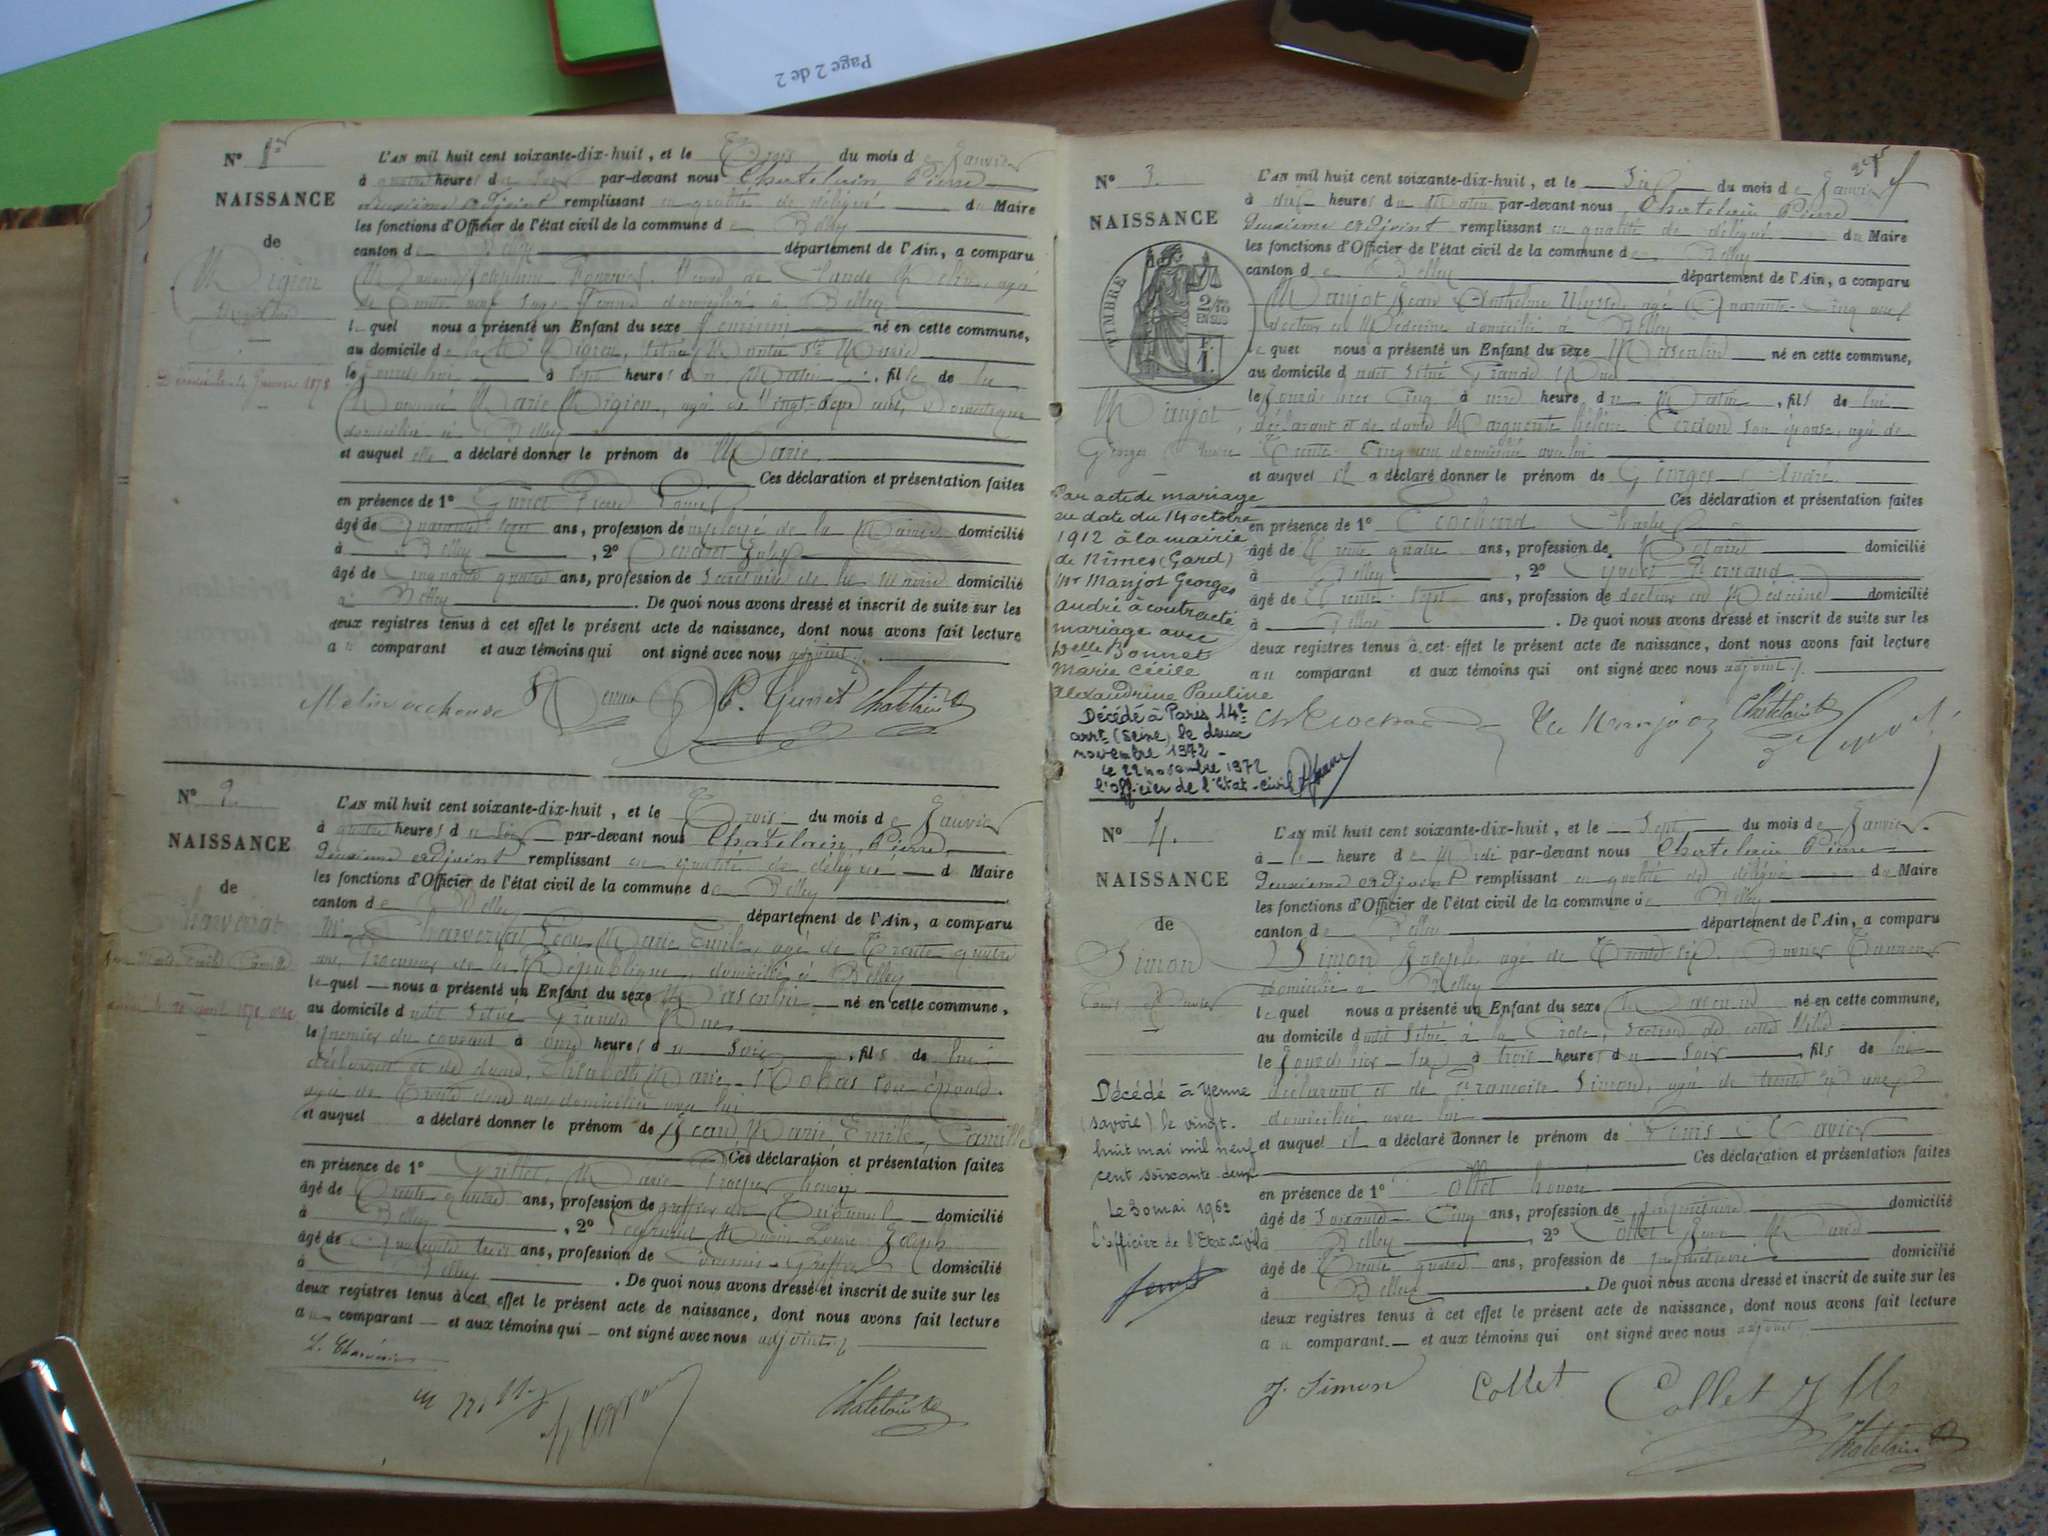 Page 2 de 2
N° 1er
NAISSANCE
de
Migieu
L'AN mil huit cent soixante-dix-huit, et le Trois du mois de Janvier
à quatre heures du soir par-devant nous Chatelain Pierre
deuxième adjoint remplissant en qualité de délégué du Maire
les fonctions d'Officier de l'état civil de la commune de Belley
canton de Belley département de l'Ain, a comparu
de trente neuf sage femme domiciliée à Belley
lequel nous a présenté un Enfant du sexe féminin né en cette commune,
au domicile de
le à sept heures du Matin, fille de
Marie Migieu, agée de vingt-sept ans, Domestique
domiciliée à Belley
et auquel elle a déclaré donner le prénom de Marie
Ces déclaration et présentation faites
en présence de 1° Gunet Pierre
âgé de Quarante sept ans, profession de employé de la Mairie domicilié
à Belley, 2°
âgé de Cinquante quatre ans, profession de Secrétaire de la Mairie domicilié
à Belley. De quoi nous avons dressé et inscrit de suite sur les
deux registres tenus à cet effet le présent acte de naissance, dont nous avons fait lecture
au comparant et aux témoins qui ont signé avec nous adjoint.
P. Gunet Chatelain
N° 2.
NAISSANCE
de
Chaveriat
L'AN mil huit cent soixante-dix-huit, et le Trois du mois de Janvier
à quatre heures du soir par-devant nous Chatelain Pierre
Deuxième adjoint remplissant en qualité de délégué d Maire
les fonctions d'Officier de l'état civil de la commune de Belley
canton de Belley département de l'Ain, a comparu
Marie Emile, agé de Trente quatre
ans, Procureur de la République, domicilié à Belley
lequel nous a présenté un Enfant du sexe Masculin né en cette commune,
au domicile dudit situé Grande Rue
le premier du courant à onze heures du soir, fils de lui
déclarant et de dame Elisabeth Marie son épouse
agée de Trente deux ans domiciliée avec lui
et auquel a déclaré donner le prénom de Jean, Marie, Emile, Camille
Ces déclaration et présentation faites
en présence de 1° Marie Prosper
âgé de Trente quatre ans, profession de greffier du Tribunal domicilié
à Belley, 2° Joseph
âgé de ans, profession de Commis-Greffier domicilié
à Belley. De quoi nous avons dressé et inscrit de suite sur les
deux registres tenus à cet effet le présent acte de naissance, dont nous avons fait lecture
au comparant et aux témoins qui ont signé avec nous adjoint.
Chatelain
N° 3.
NAISSANCE
de
TIMBRE
2/10
EN SUS
F.
1.
Manjot
Georges André
L'AN mil huit cent soixante-dix-huit, et le Six du mois de Janvier
à dix heures du Matin par-devant nous Chatelain Pierre
Deuxième adjoint remplissant en qualité de délégué du Maire
les fonctions d'Officier de l'état civil de la commune de Belley
canton de Belley département de l'Ain, a comparu
Manjot Jean Anthelme Ulysse, agé Quarante-Cinq ans
docteur en Médecine domicilié à Belley
lequel nous a présenté un Enfant du sexe Masculin né en cette commune,
au domicile dudit situé Grande Rue
le Jour d'hier Cinq à une heure du Matin, fils de lui
déclarant et de dame Marguerite Hélène son épouse, agée de
Trente-Cinq ans domiciliée avec lui
et auquel il a déclaré donner le prénom de Georges André
Ces déclaration et présentation faites
en présence de 1° Charles
âgé de Trente quatre ans, profession de Notaire domicilié
à Belley, 2°
âgé de Trente-sept ans, profession de docteur en Médecine domicilié
à Belley. De quoi nous avons dressé et inscrit de suite sur les
deux registres tenus à cet effet le présent acte de naissance, dont nous avons fait lecture
au comparant et aux témoins qui ont signé avec nous adjoint.
Chatelain
Par acte de mariage
en date du 14 octobre
1912 à la mairie
de Nîmes (Gard)
Mr Manjot Georges
André à contracté
mariage avec
Delle Bonnet
Marie Cécile
Alexandrine Pauline
Décédé à Paris 14e
arrt (Seine) le deux
novembre 1972 -
le 22 novembre 1972
l'officier de l'Etat-civil
N° 4.
NAISSANCE
de
Simon
Louis Xavier
L'AN mil huit cent soixante-dix-huit, et le Sept du mois de Janvier
à heure de Midi par-devant nous Chatelain Pierre
Deuxième adjoint remplissant en qualité de délégué du Maire
les fonctions d'Officier de l'état civil de la commune de Belley
canton de Belley département de l'Ain, a comparu
Simon Joseph, agé de Trente-six, Ouvrier Tanneur
domicilié à Belley
lequel nous a présenté un Enfant du sexe Masculin né en cette commune,
au domicile dudit situé à la
le Jour d'hier six à trois heures du soir, fils de lui
déclarant et de Françoise Simond, agée de trente
domiciliée avec lui
et auquel il a déclaré donner le prénom de Louis Xavier
Ces déclaration et présentation faites
en présence de 1° Collet honoré
âgé de Soixante-Cinq ans, profession de propriétaire domicilié
à Belley, 2° Collet
âgé de Trente quatre ans, profession de propriétaire domicilié
à Belley. De quoi nous avons dressé et inscrit de suite sur les
deux registres tenus à cet effet le présent acte de naissance, dont nous avons fait lecture
au comparant et aux témoins qui ont signé avec nous adjoint.
Décédé à Yenne
(Savoie) le vingt-
huit mai mil neuf
cent soixante deux
Le 30 mai 1962
L'officier de l'Etat-civil
J. Simon Collet Collet
Chatelain